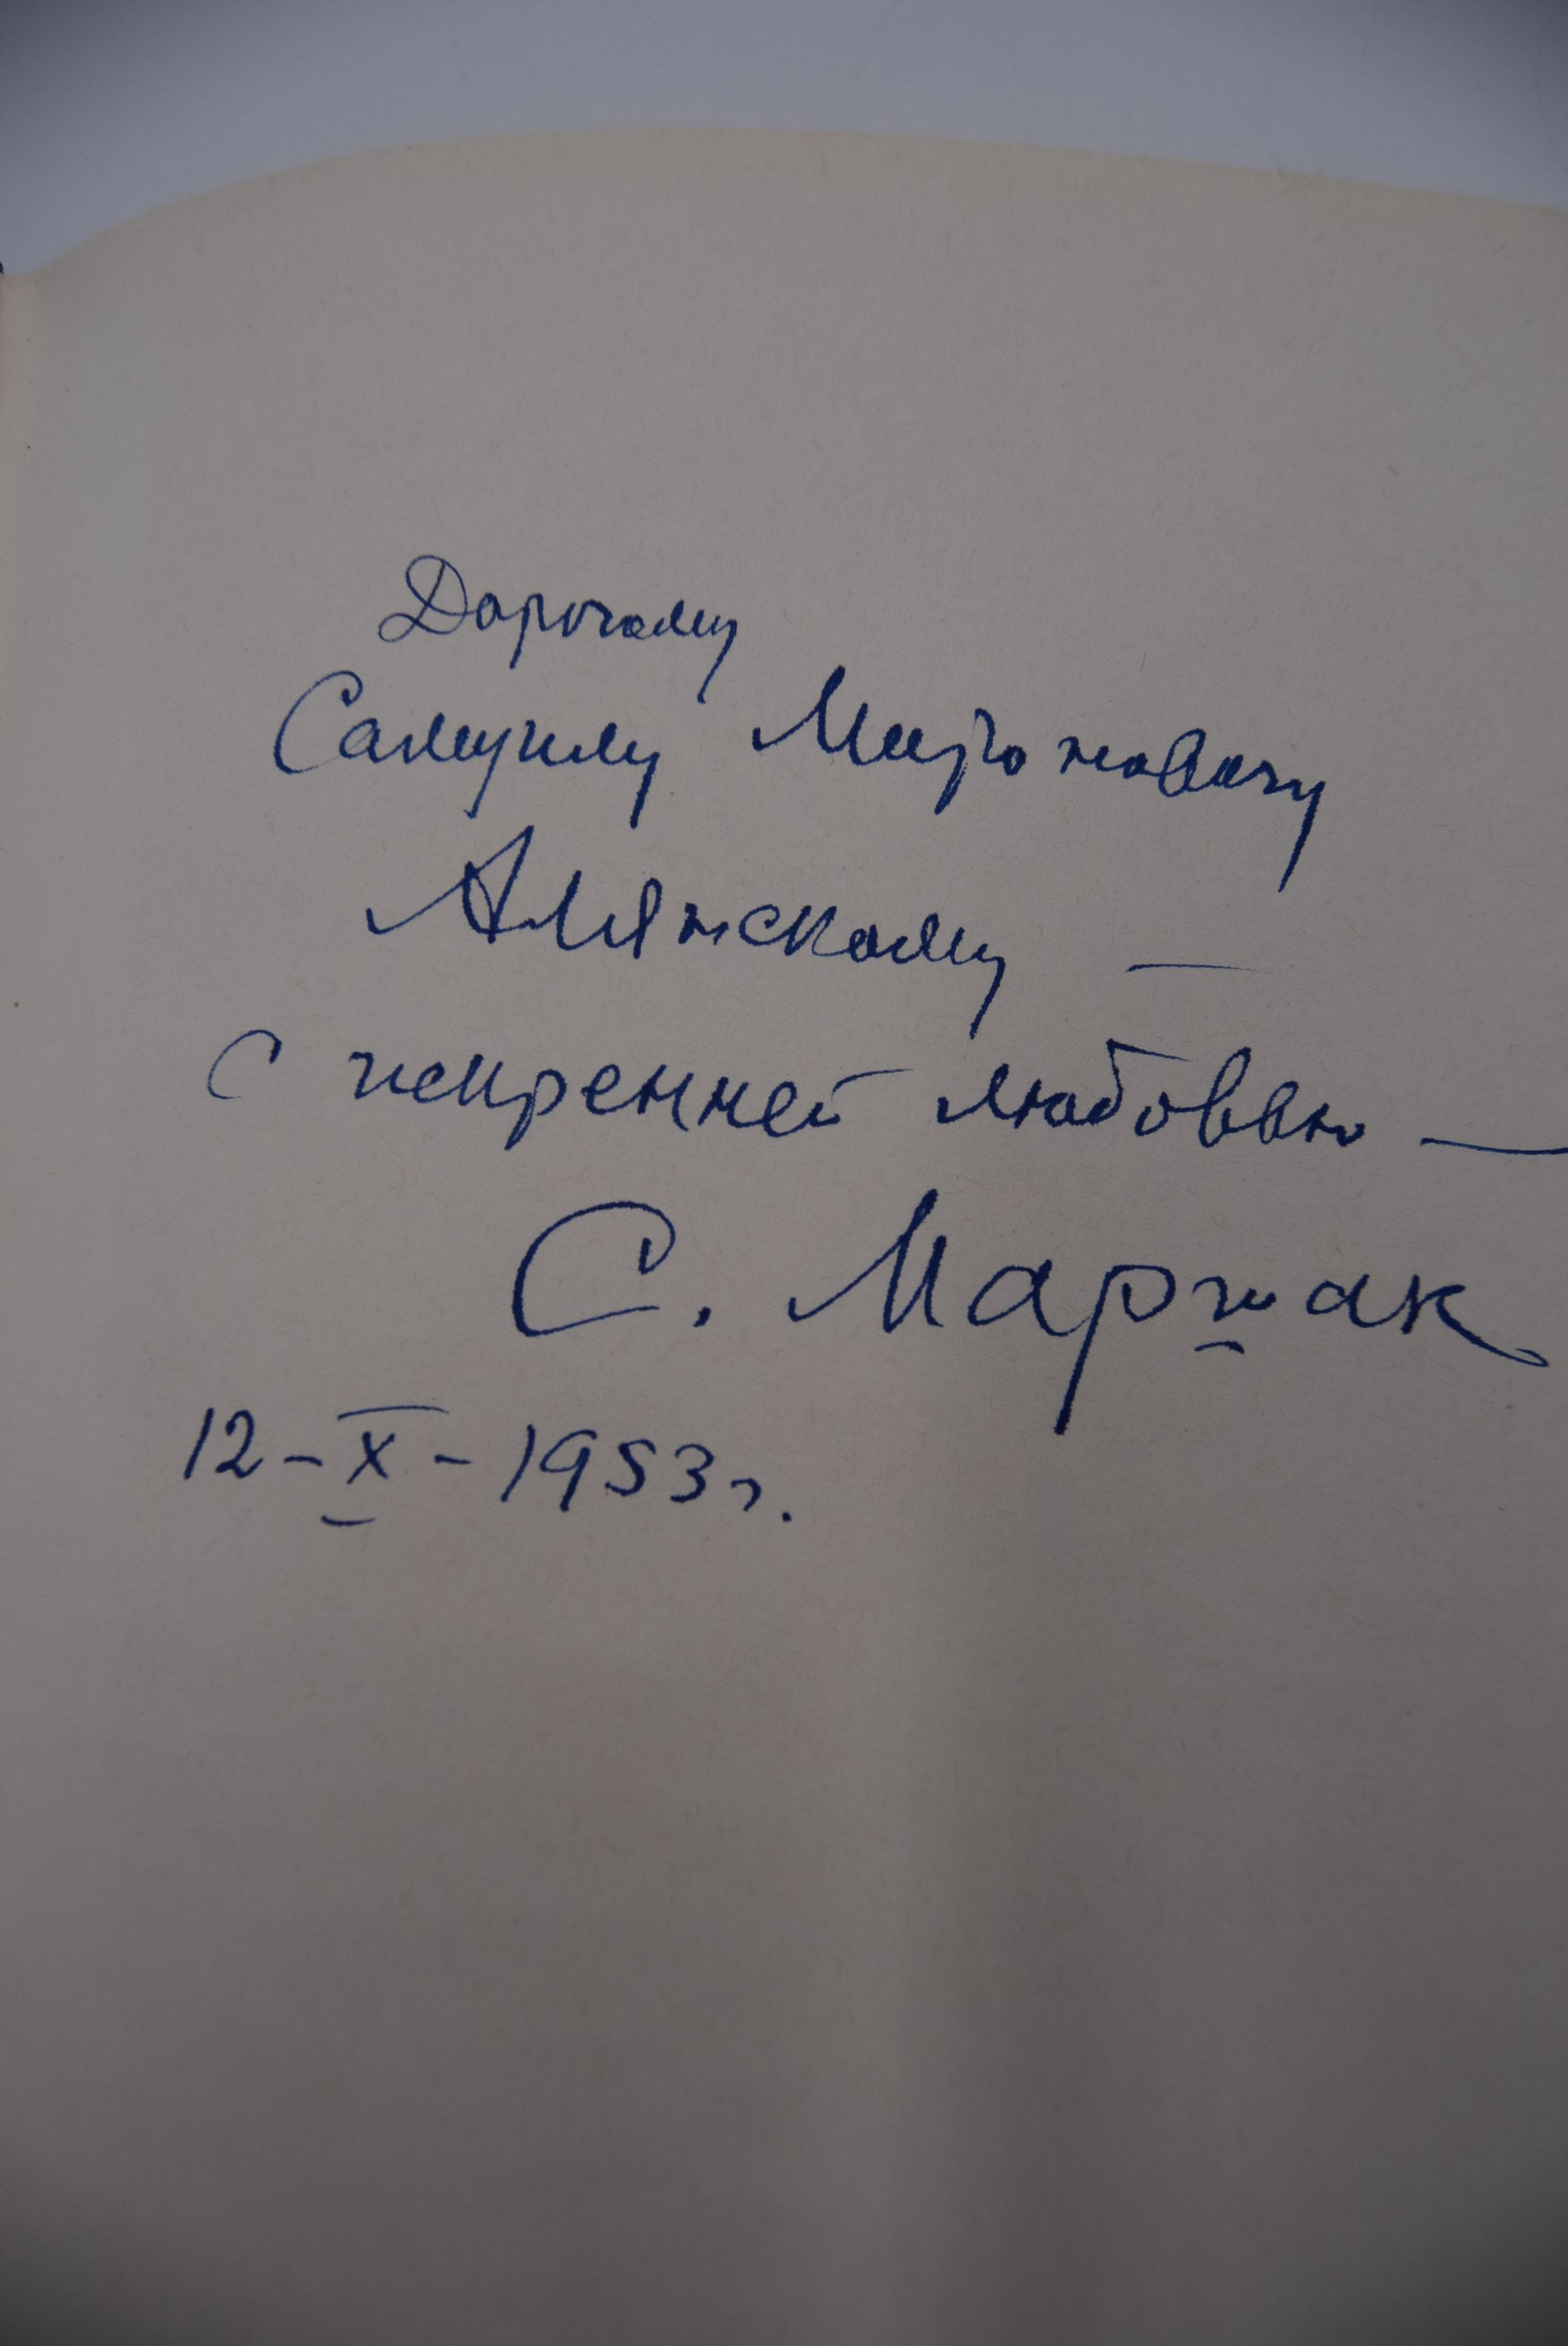 Дорогому
Самуилу Мироновичу
Алянскому —
с искренней любовью —
С. Маршак
12-X-1953 г.